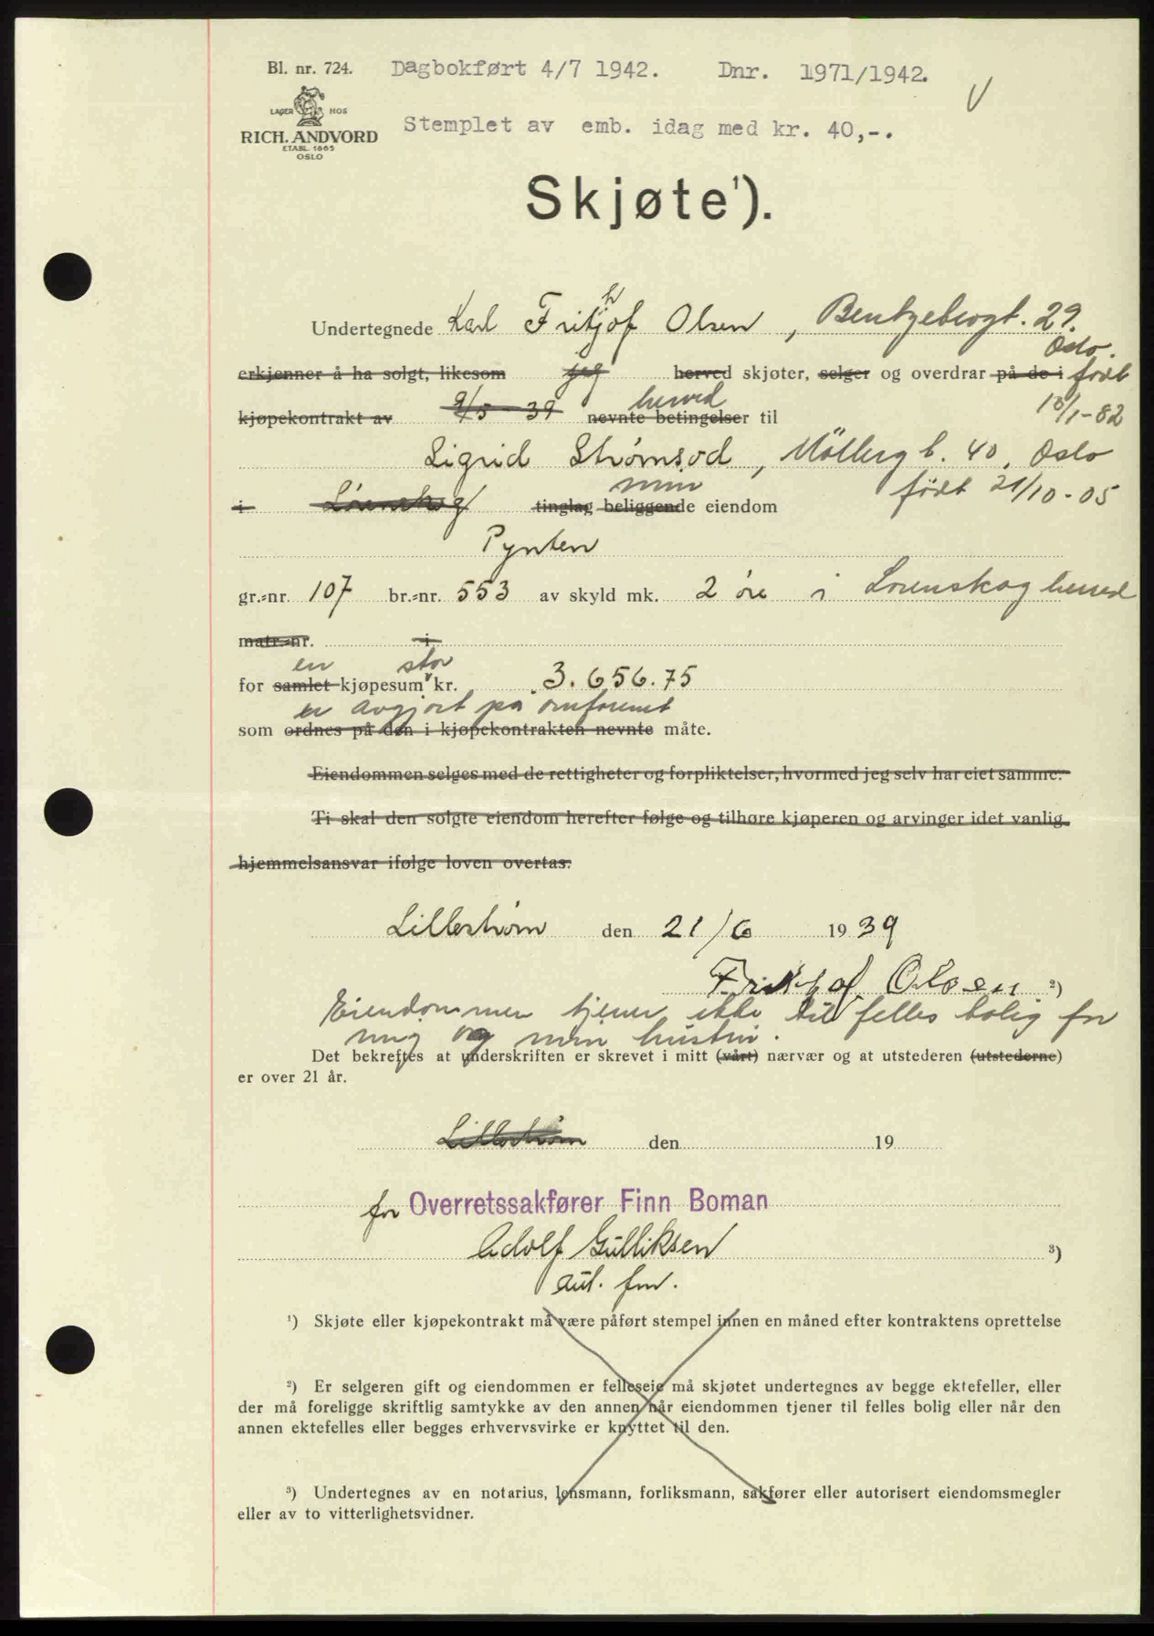 Bl. nr. 724. Dagbokført 4/7 1942. Dnr. 1971/1942.
LAGER HOS
Stemplet av emb. idag med kr. 40,-.
RICH. ANDVORD
ETABL. 1865
OSLO
Skjøte¹).
Undertegnede Karl Frithjof Olsen, Bentzebrogt. 29.
Oslo.
erkjenner å ha solgt, likesom jeg herved skjøter, selger og overdrar på de i født
herved 13/1-82
kjøpekontrakt av 9/5 39 nevnte betingelser til
Sigrid Strømsod, Möllerg t. 40, Oslo
min født 21/10-05
i Lørenskog tinglag beliggende eiendom
Pynten
gr.-nr. 107 br.-nr. 553 av skyld mk. 2 øre i Lørenskog herred
matr.-nr. i
en stor
for samlet kjøpesum kr. 3.656.75
er avgjort på omforenet
som ordnes på den i kjøpekontrakten nevnte måte.
Eiendommen selges med de rettigheter og forpliktelser, hvormed jeg selv har eiet samme.
Ti skal den solgte eiendom herefter følge og tilhøre kjøperen og arvinger idet vanlig
hjemmelsansvar ifølge loven overtas.
Lillestrøm den 21/6 1939
Frithjof Olsen ²)
Eiendommen tjener ikke til felles bolig for
mig og min hustru.
Det bekreftes at underskriften er skrevet i mitt (vårt) nærvær og at utstederen (utstederne)
er over 21 år.
Lillestrøm den 19
for Overretssakfører Finn Boman
Adolf Gulliksen ³)
aut. fm.
¹) Skjøte eller kjøpekontrakt må være påført stempel innen en måned efter kontraktens oprettelse
²) Er selgeren gift og eiendommen er felleseie må skjøtet undertegnes av begge ektefeller, eller
der må foreligge skriftlig samtykke av den annen når eiendommen tjener til felles bolig eller når den
annen ektefelles eller begges erhvervsvirke er knyttet til den.
³) Undertegnes av en notarius, lensmann, forliksmann, sakfører eller autorisert eiendomsmegler
eller av to vitterlighetsvidner.